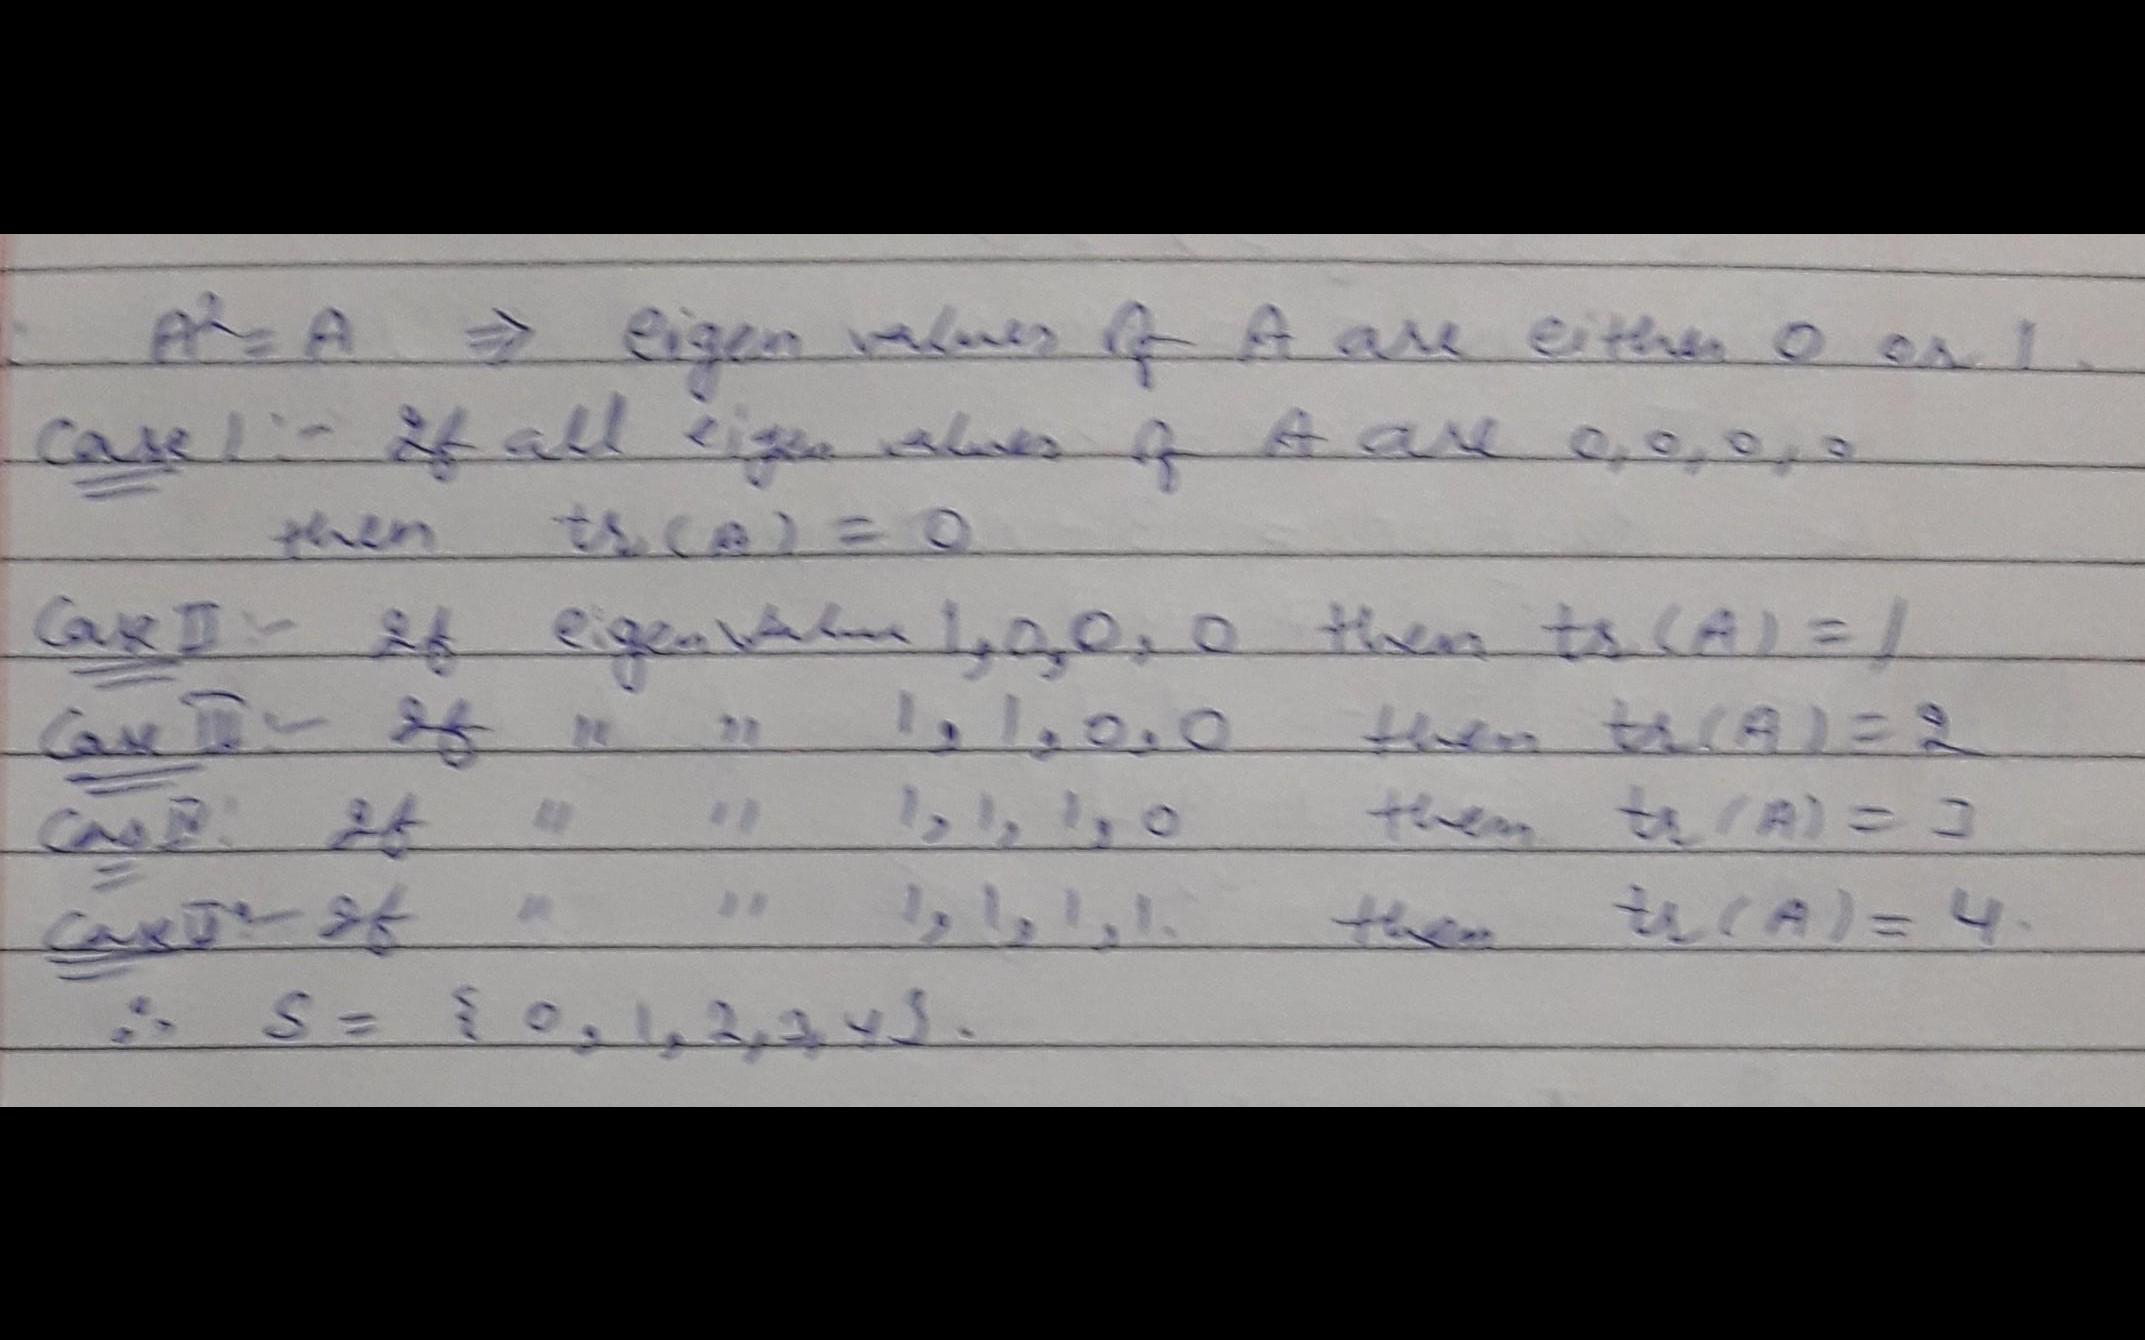 A² = A ⇒ eigen values of A are either 0 or 1.
Case I :- If all eigen values of A are 0,0,0,0
then tr(A) = 0
Case II :- If eigen value 1,0,0,0 then tr(A) = 1
Case III :- If " " 1,1,0,0 then tr(A) = 2
Case IV: If " " 1,1,1,0 then tr(A) = 3
Case V :- If " " 1,1,1,1. then tr(A) = 4.
∴ S = {0,1,2,3,4}.